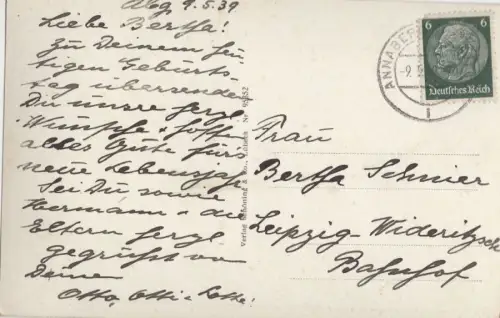 Abg. 9.5.39
Liebe Bertha!
Zu Deinem heu-
tigen Geburts-
tag übersenden
Dir unsre herzl.
Wünsche & hoffen
alles Gute fürs
neue Lebensjahr.
Sei Du sowie
Hermann & die
Eltern herzl.
gegrüsst von
Deinen
Otto, Otti & Lothe!
Verlag Schöning & Lübeck Nr. 95352
ANNABER
-9.5
6 6
Deutsches Reich
Frau
Bertha Schnier
Leipzig-Wideritzsch
Bahnhof